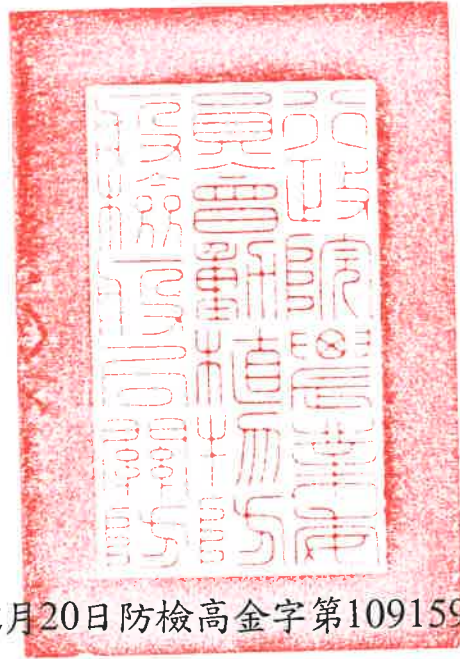 行政院農業委
員會動植物防
疫檢疫局關防
月20日防檢高金字第109159